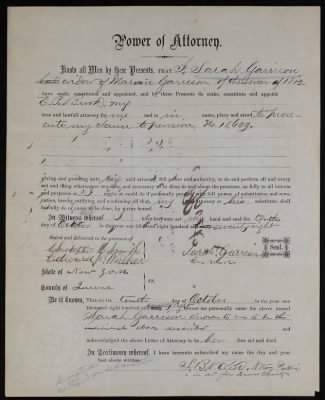 Power of Attorney.
Know all Men by these Presents, THAT I, Sarah Garrison
widow of Garrison of the War of 1812
have made, constituted and appointed, and by these Presents do make, constitute and appoint
my
true and lawful attorney for me and in name, place and stead to prose-
cute my claim to pension, No. 18609.
giving and granting unto said attorney full power and authority, to do and perform all and every
act and thing whatsoever requisite and necessary to be done in and about the premises, as fully to all intents
and purposes as I might or could do if personally present with full power of substitution and revo-
cation, hereby ratifying and confirming all that my said attorney or his substitute shall
lawfully do or cause to be done, by virtue hereof.
In Witness whereof, I have hereunto set my hand and the tenth
day of October in the year one thousand eight hundred and seventy eight
Sealed and delivered in the presence of
Sarah Garrison
Seal.
State of New York
County of Queens
ss:
Be it known, That on the tenth day of October in the year one
thousand eight hundred and before me personally came the above named
Sarah Garrison known to me to be the
individual above described and
acknowledged the above Letter of Attorney to be her free act and deed.
In Testimony whereof, I have hereunto subscribed my name the day and year
last above written.